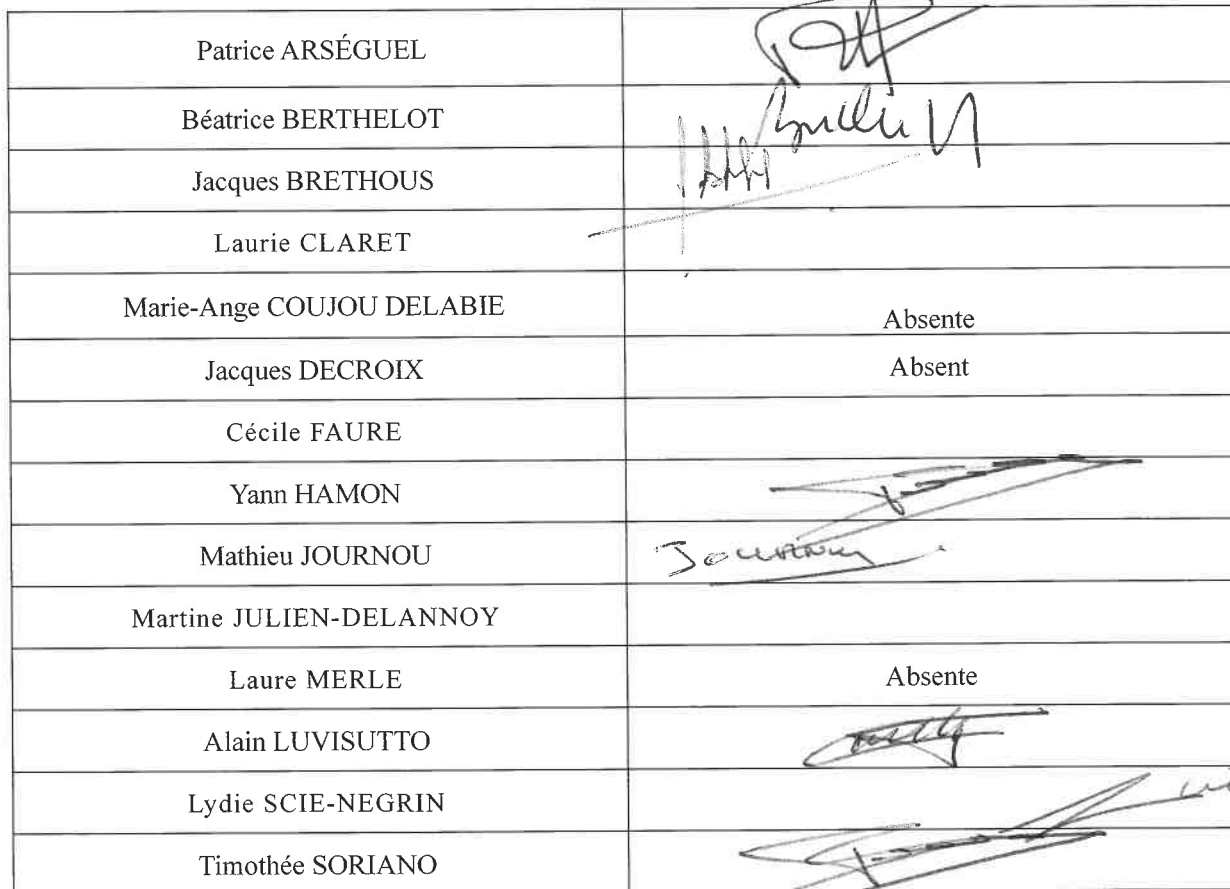 Patrice ARSÉGUEL
Béatrice BERTHELOT
Jacques BRETHOUS
Laurie CLARET
Marie-Ange COUJOU DELABIE
Absente
Jacques DECROIX
Absent
Cécile FAURE
Yann HAMON
Mathieu JOURNOU
Martine JULIEN-DELANNOY
Laure MERLE
Absente
Alain LUVISUTTO
Lydie SCIE-NEGRIN
Timothée SORIANO